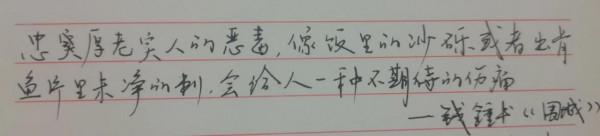 忠实厚老实人的恶毒,像饭里的沙砾或者出骨
鱼片里未净的刺,会给人一种不期待的伤痛
——钱锺书《围城》